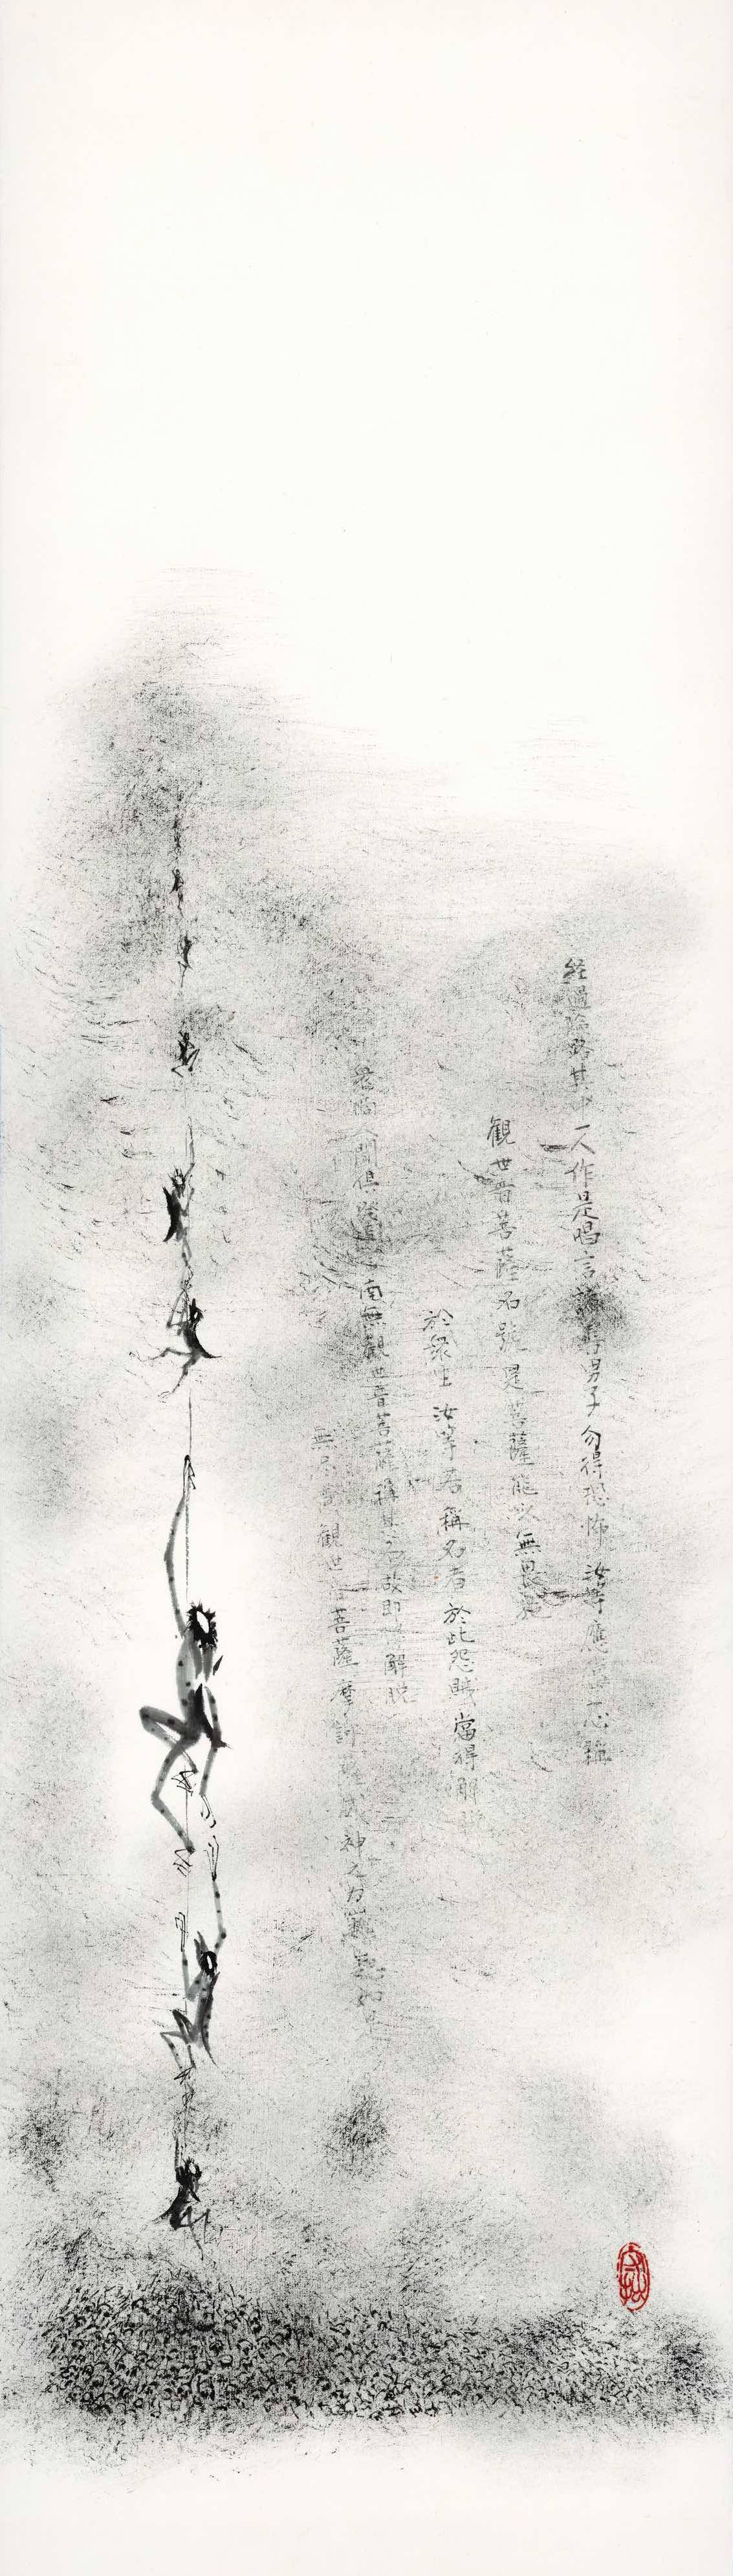 経過險路其中一人作是唱言諸善男子勿得恐怖汝等應當一心稱
観世音菩薩名號是菩薩能以無畏施
於衆生汝等若稱名者於此怨賊當得解脱
衆商人聞俱發聲言南無観世音菩薩稱其名故即得解脱
無尽意観世音菩薩摩訶薩威神之力巍巍如是